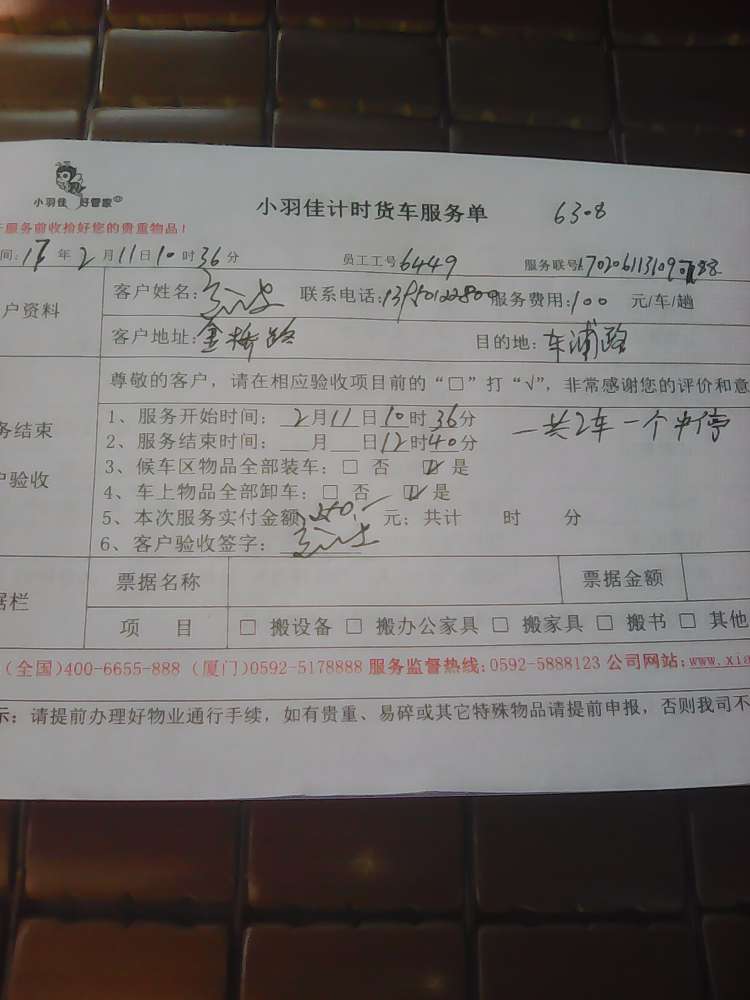 小羽佳 好管家
小羽佳计时货车服务单 6308
服务前收拾好您的贵重物品！
间：17年2月11日10时36分 员工工号6449 服务联号
户资料
客户姓名： 联系电话： 服务费用：100 元/车/趟
客户地址：金桥路 目的地：车浦路
尊敬的客户，请在相应验收项目前的“□”打“√”，非常感谢您的评价和意
务结束
户验收
1、服务开始时间：2月11日10时36分 一共2车一个中停
2、服务结束时间：＿月＿日12时40分
3、候车区物品全部装车：□ 否 ☑ 是
4、车上物品全部卸车：□ 否 ☑ 是
5、本次服务实付金额 250 元；共计 时 分
6、客户验收签字：
据栏
票据名称 票据金额
项 目 □ 搬设备 □ 搬办公家具 □ 搬家具 □ 搬书 □ 其他
(全国)400-6655-888 (厦门)0592-5178888 服务监督热线:0592-5888123 公司网站:www.xia
示：请提前办理好物业通行手续，如有贵重、易碎或其它特殊物品请提前申报，否则我司不